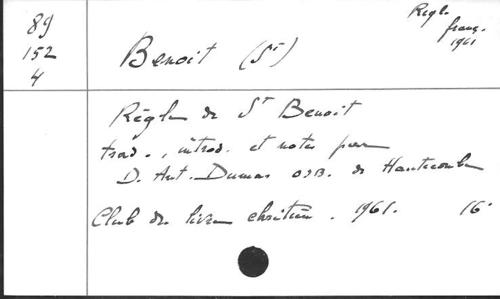 89
152
4
Regl.
franç.
1961
Benoit (St)
Règle de St Benoit
trad., introd. et notes par
D. Ant. Dumas OSB. de Hautecombe
Club du livre chrétien. 1961. 16°